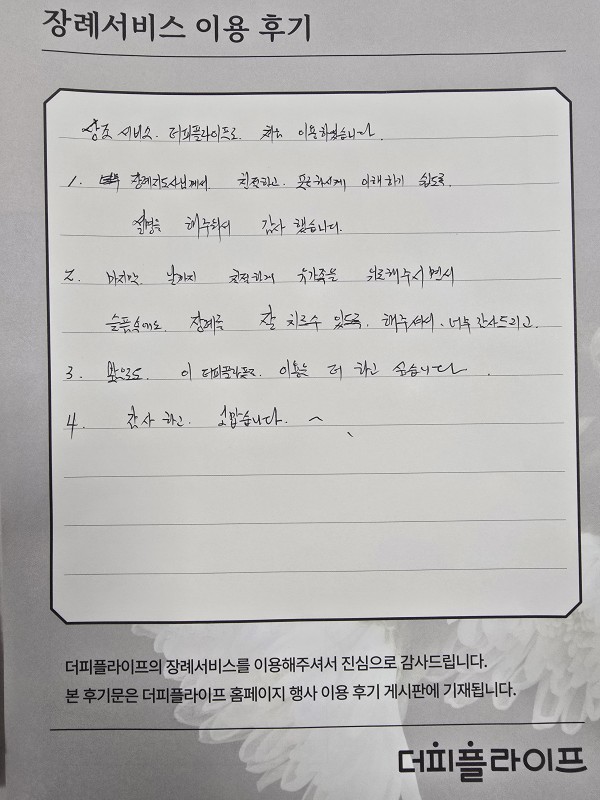 장례서비스 이용 후기
상조 서비스. 더피플라이프로. 처음 이용하였습니다.
1. 장례지도사님께서. 친절하고. 이해하기 쉽도록.
설명을 해주셔서 감사 했습니다.
2. 마지막 날까지 친절하게 유가족을 위로해주시면서
슬픔속에도. 장례를 잘 치르수 있도록. 해주셔서. 너무 감사드리고.
3. 앞으로도. 이 이용을 더 하고 싶습니다.
4. 감사 하고. 고맙습니다.
더피플라이프의 장례서비스를 이용해주셔서 진심으로 감사드립니다.
본 후기문은 더피플라이프 홈페이지 행사 이용 후기 게시판에 기재됩니다.
더피플라이프